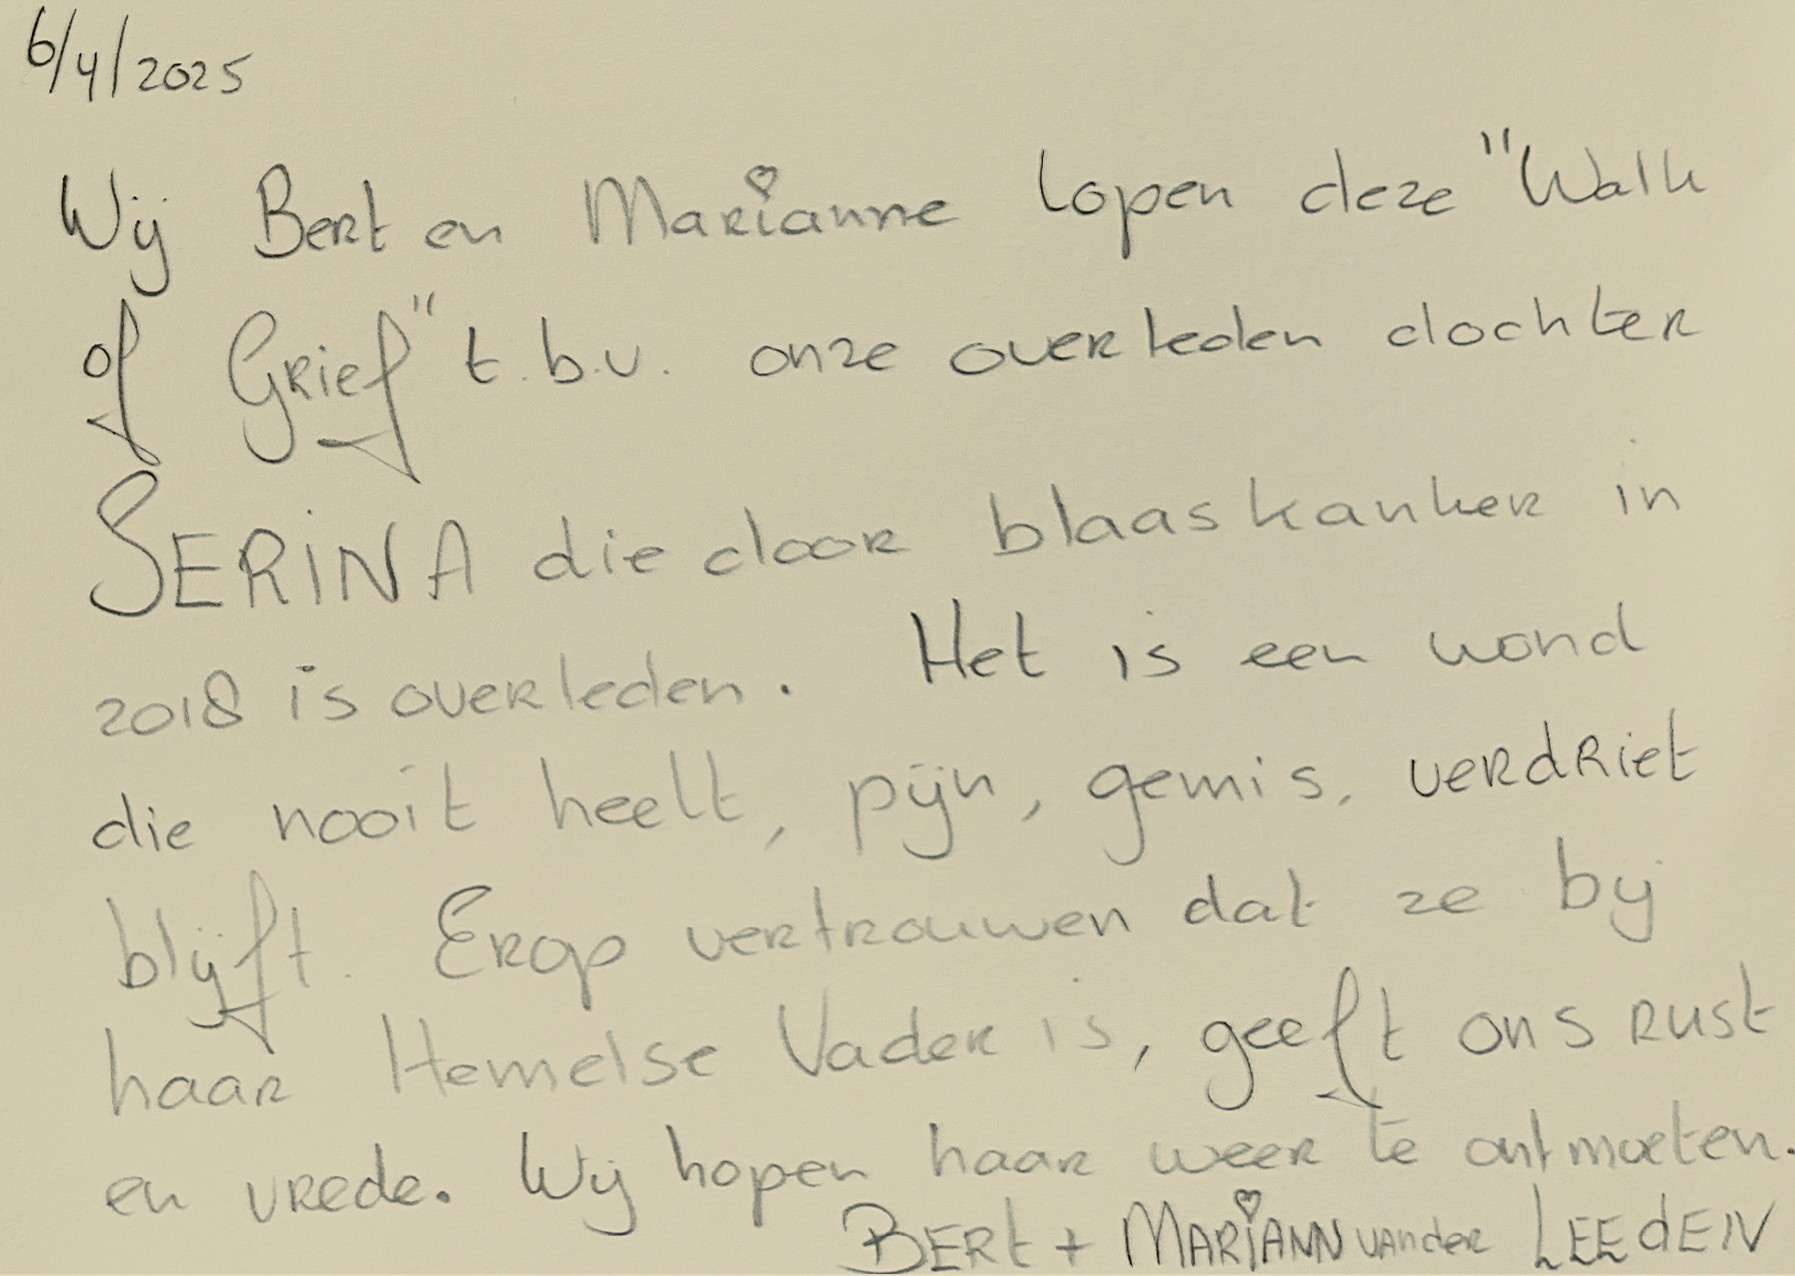 6/4/2025
Wij Bert en Marianne lopen deze "Walk
of Grief" t.b.v. onze overleden dochter
SERINA die door blaaskanker in
2018 is overleden. Het is een wond
die nooit heelt, pijn, gemis, verdriet
blijft. Erop vertrouwen dat ze bij
haar Hemelse Vader is, geeft ons rust
en vrede. Wij hopen haar weer te ontmoeten.
BERt + MARiANN vander LEEdEN